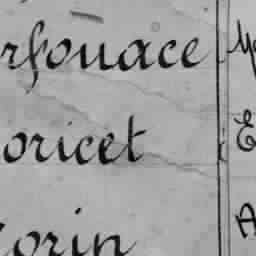 rfouace
oricet
orin